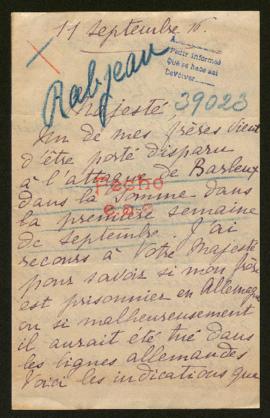 11 septembre 16.
A
Pedir informes
Que se hace así
Devolver
Rabjeau
39023
Majesté,
Un de mes frères vient
d'être porté disparu
à l'attaque de Barleux
dans la Somme dans
Hecho
la première semaine
de septembre. J'ai
recours à Votre Majesté
pour savoir si mon frère
est prisonnier en Allemagne
ou si malheureusement
il aurait été tué dans
les lignes allemandes
Voici les indications que